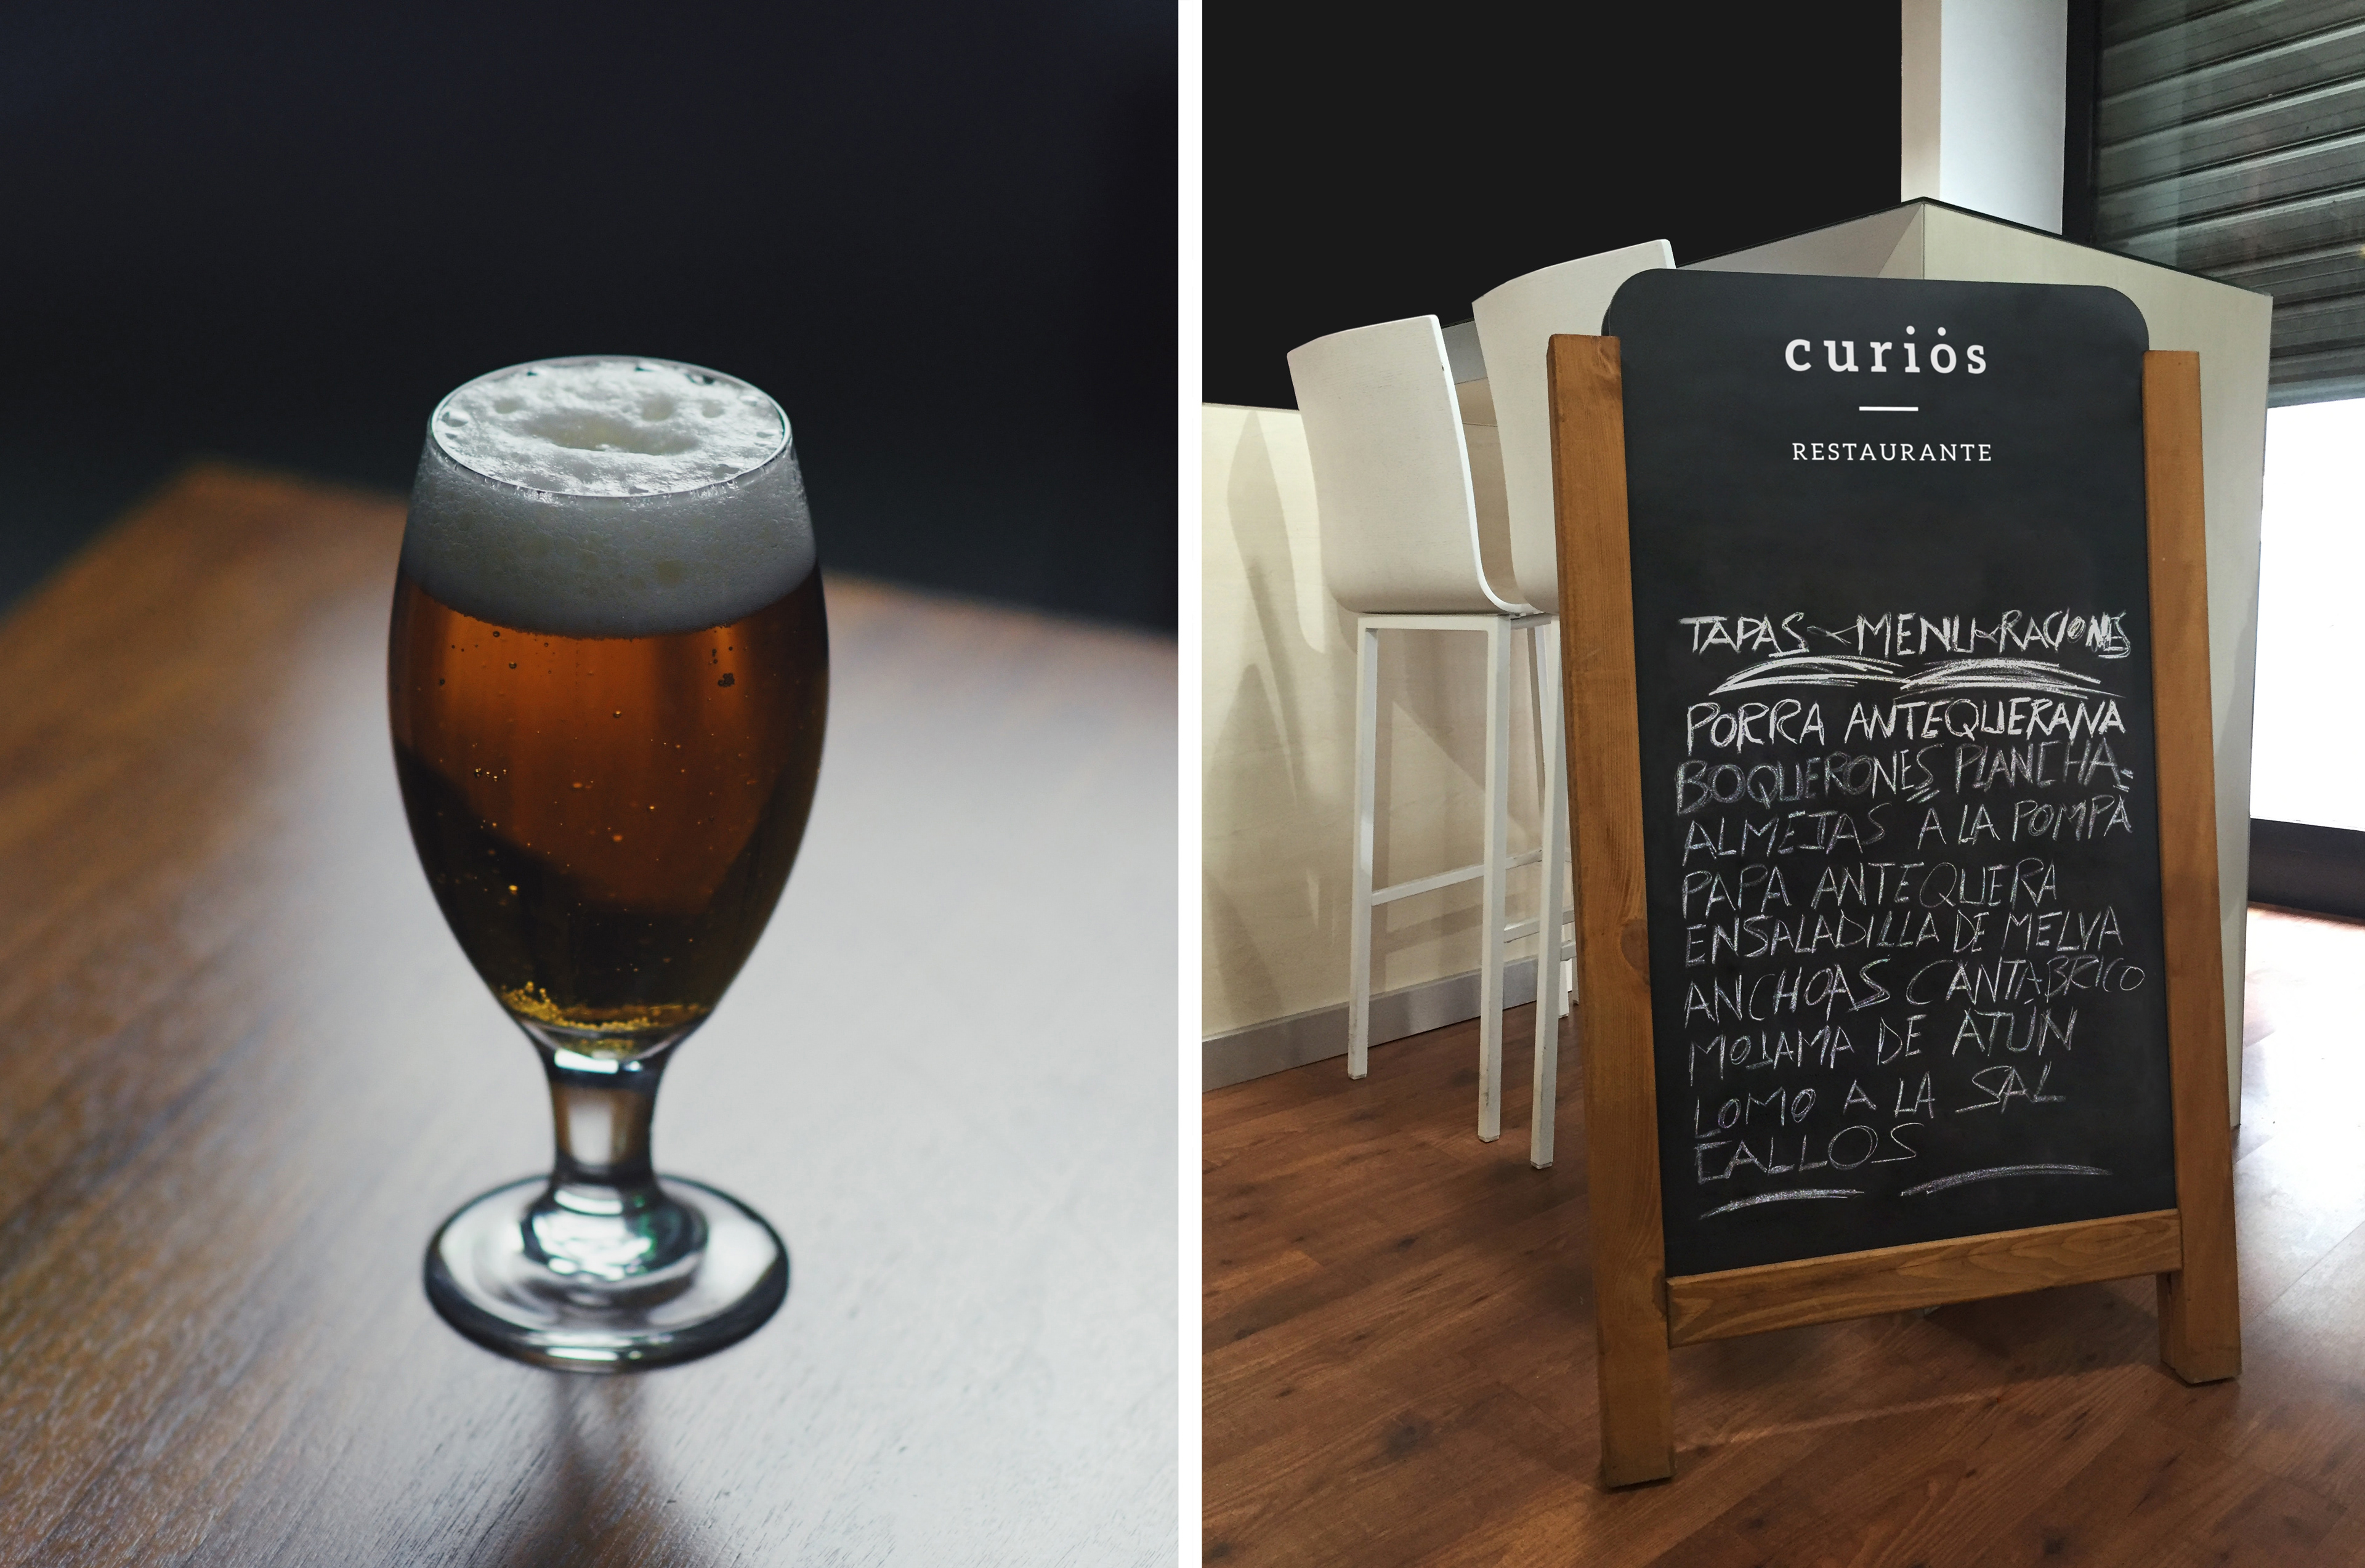 curiȯs
RESTAURANTE
TAPAS - MENU - RACIONES
PORRA ANTEQUERANA
BOQUERONES PLANCHA
ALMEJAS A LA POMPA
PAPA ANTEQUERA
ENSALADILLA DE MELVA
ANCHOAS CANTABRICO
MOJAMA DE ATÚN
LOMO A LA SAL
CALLOS